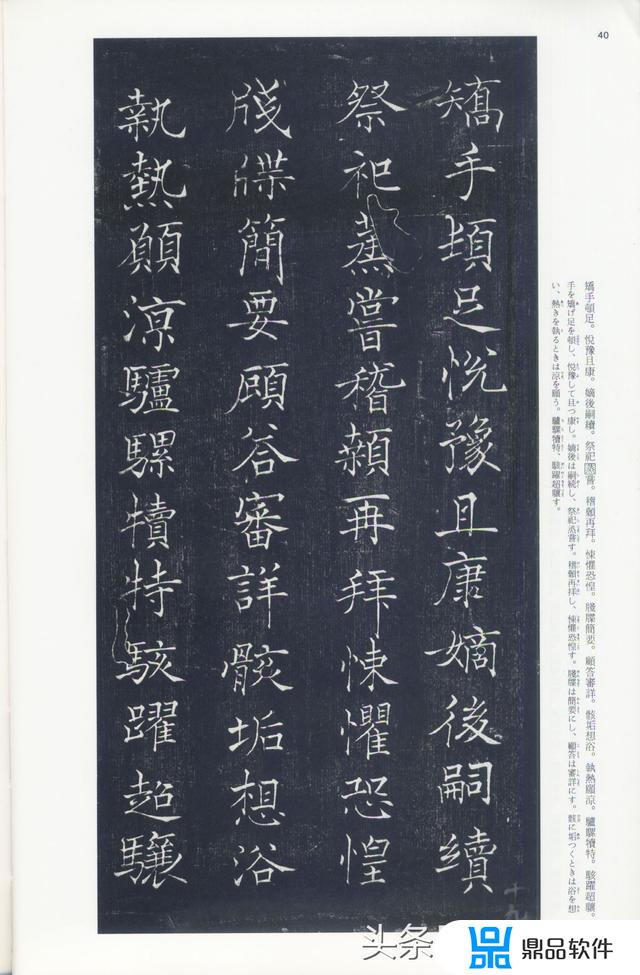 40
矯手頓足。悅豫且康。嫡後嗣續。祭祀蒸嘗。稽顙再拜。悚懼恐惶。牋牒簡要。顧答審詳。骸垢想浴。執熱願涼。驢騾犢特。駭躍超驤。
手を矯げ足を頓し、悅豫して且つ康し。嫡後は嗣続し、祭祀蒸嘗す。稽顙再拝し、悚懼恐惶す。牋牒は簡要にし、顧答は審詳にす。骸に垢つくときは浴を想
い、熱きを執るときは涼を願う。驢騾犢特、駭躍超驤す。
矯手頓足悅豫且康嫡後嗣續
祭祀蒸嘗稽顙再拜悚懼恐惶
牋牒簡要顧答審詳骸垢想浴
執熱願涼驢騾犢特駭躍超驤
十九
头条
鼎品软件